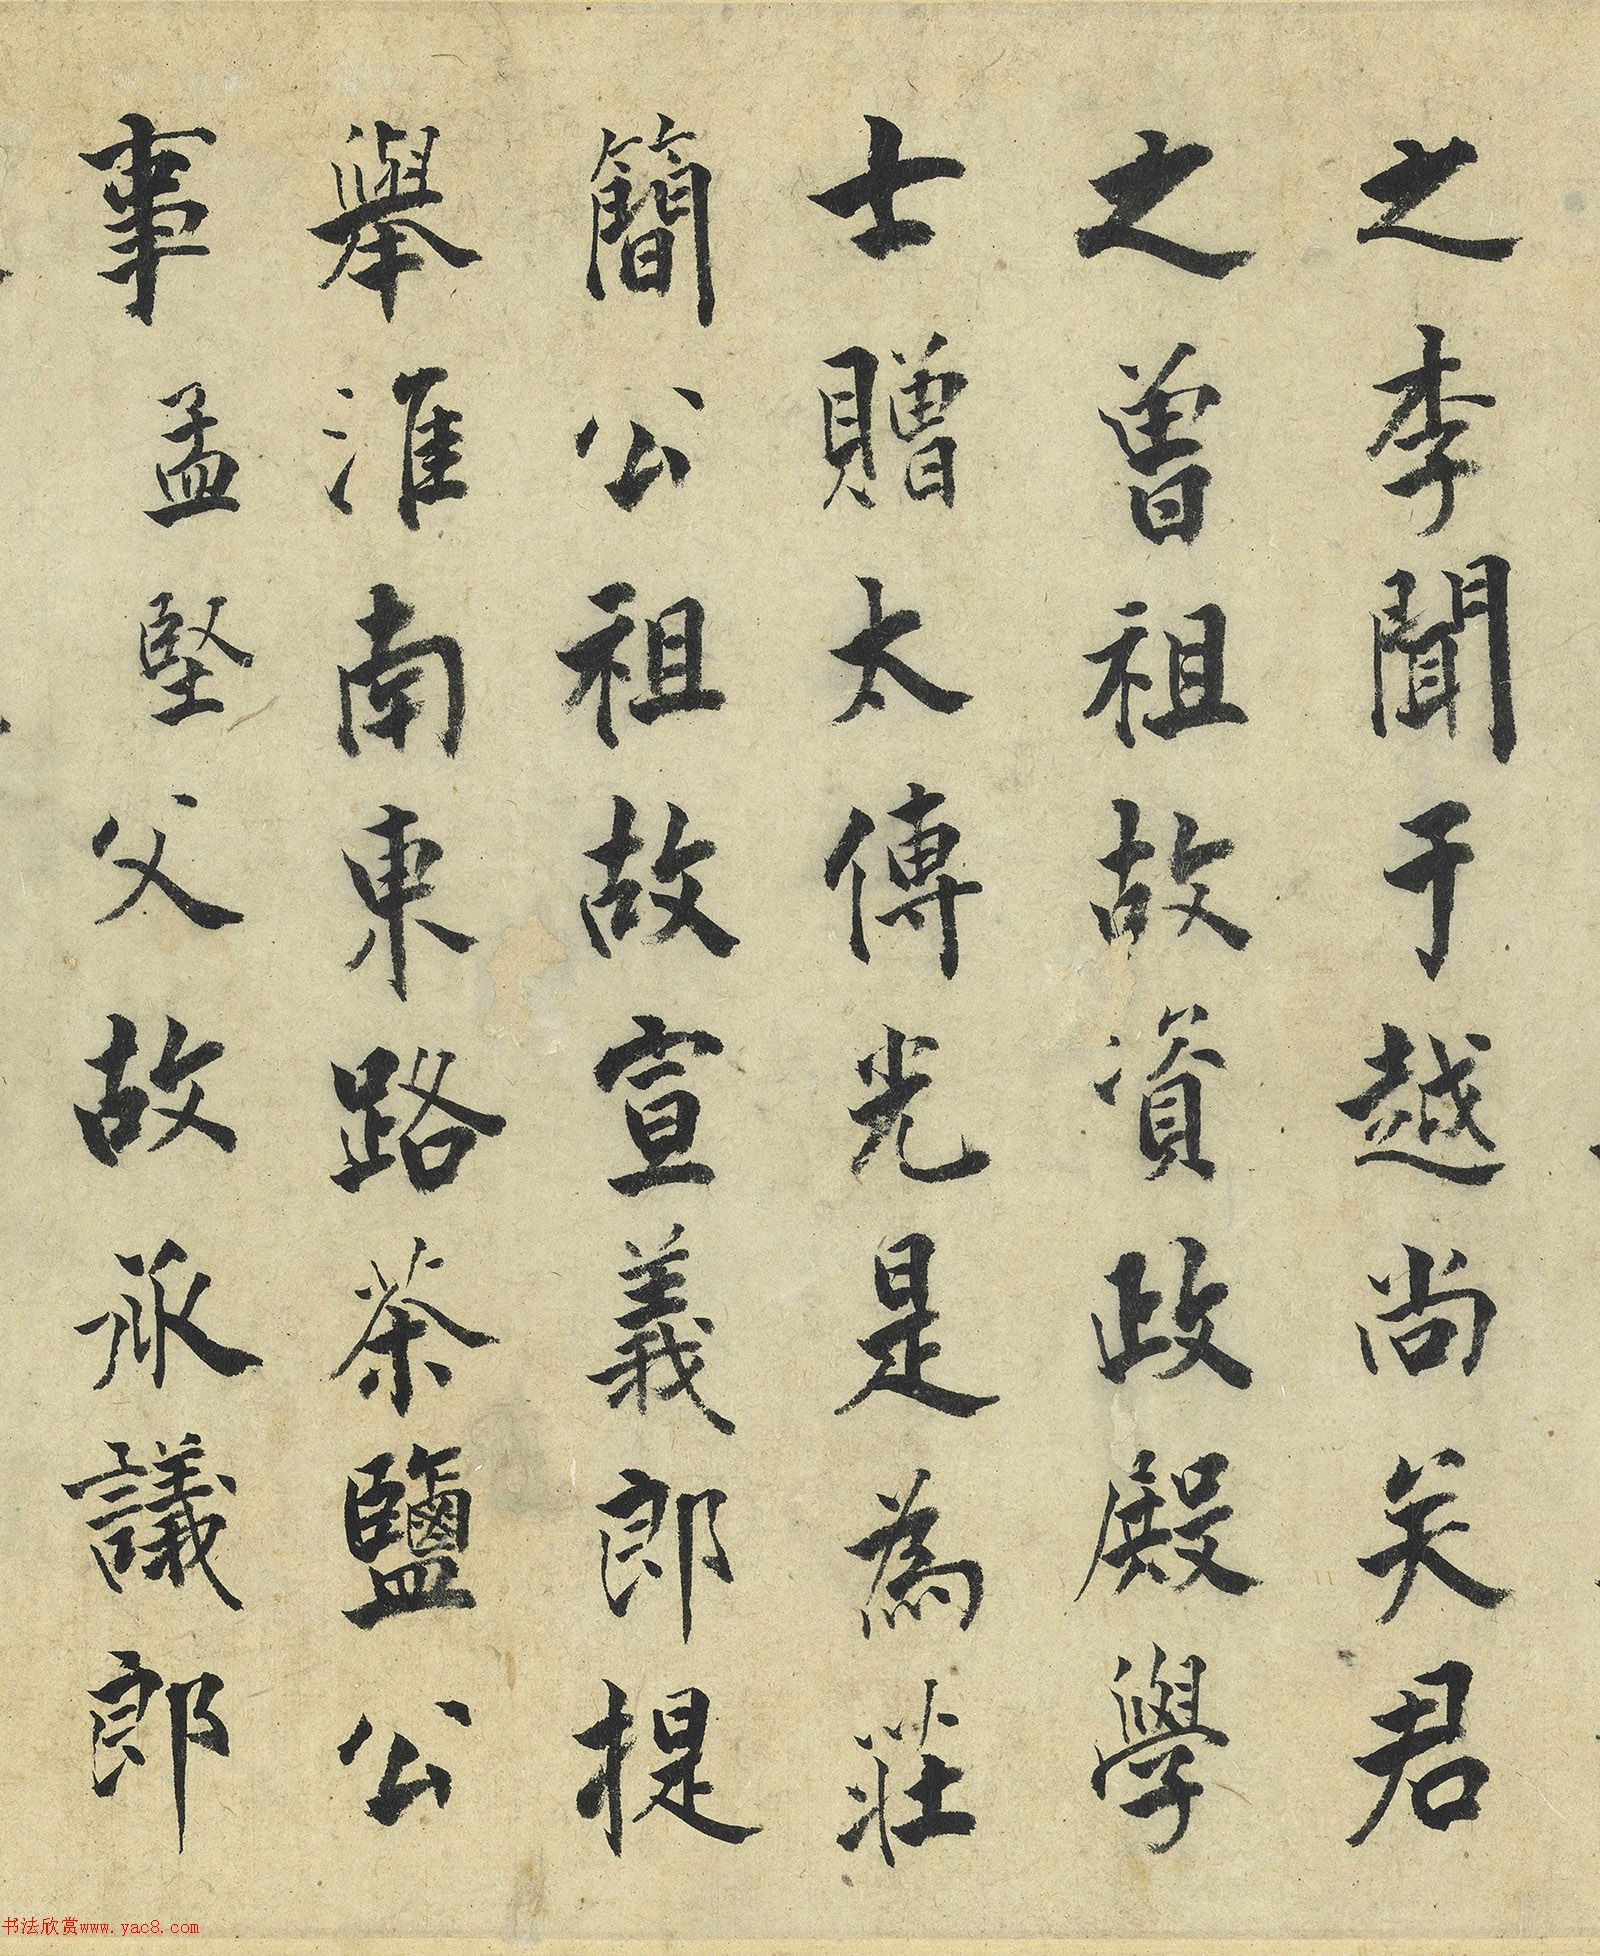 之李聞于越尚矣君
之曾祖故資政殿學
士贈太傅光是為莊
簡公祖故宣義郎提
舉淮南東路茶鹽公
事孟堅父故承議郎
书法欣赏www.yac8.com